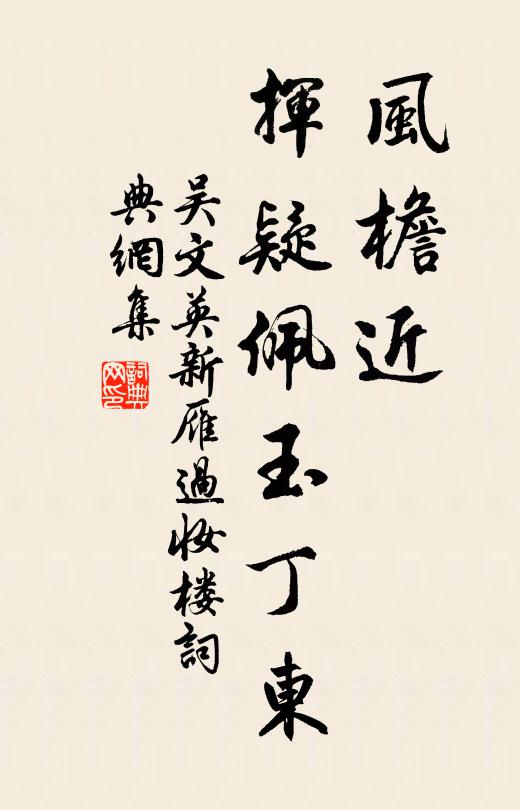 風檐近
揮疑佩玉丁東
吴文英新雁過妝楼詞
典網集
詞典网印